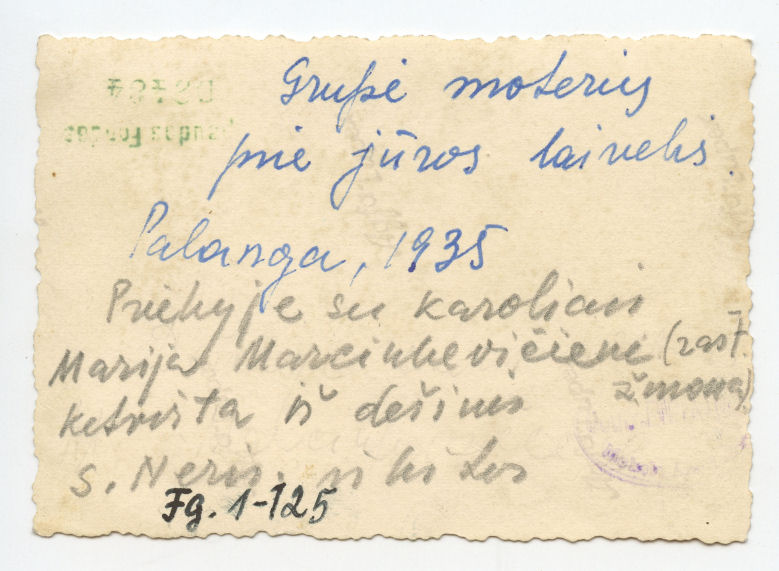 Grupė moterių
prie jūros laivelis.
Palanga, 1935
Priekyje su karoliais
Marija Marcinkevičienė (rašt.
žmona)
ketvirta iš dešinės
S. Neris. ir kitos
Fg. 1-725